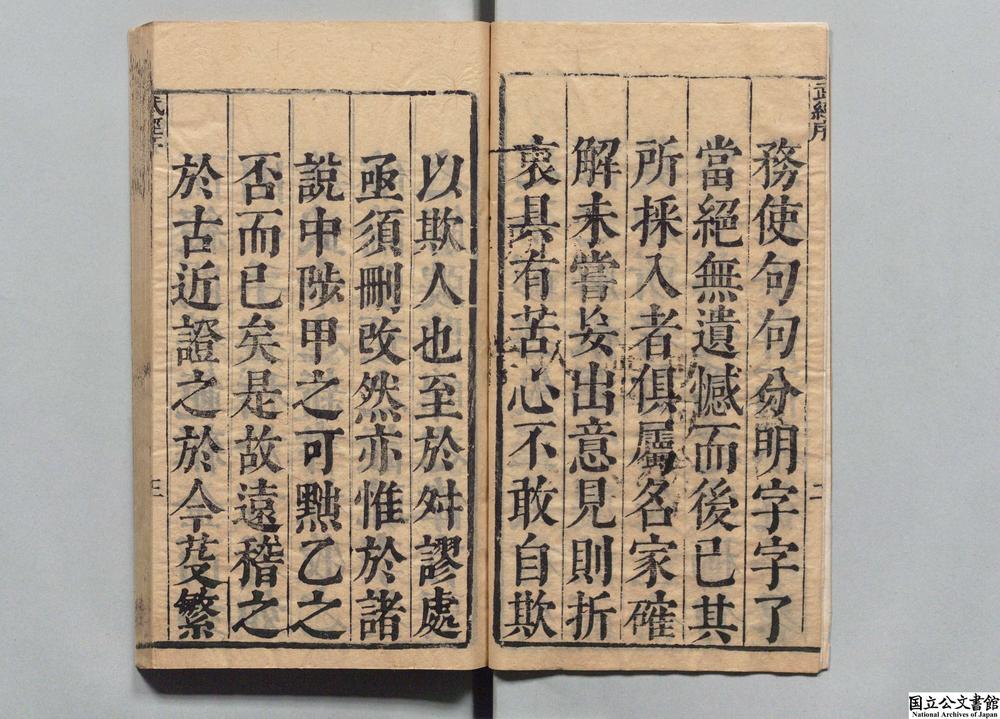 武經序
務使句句分明字字了
當絕無遺憾而後已其
所採入者俱屬名家確
解未嘗妄出意見則折
衷具有苦心不敢自欺
二
以欺人也至於舛謬處
亟須刪改然亦惟於諸
說中陟甲之可黜乙之
否而已矣是故遠稽之
於古近證之於今芟繁
武經序
三
国立公文書館
National Archives of Japan